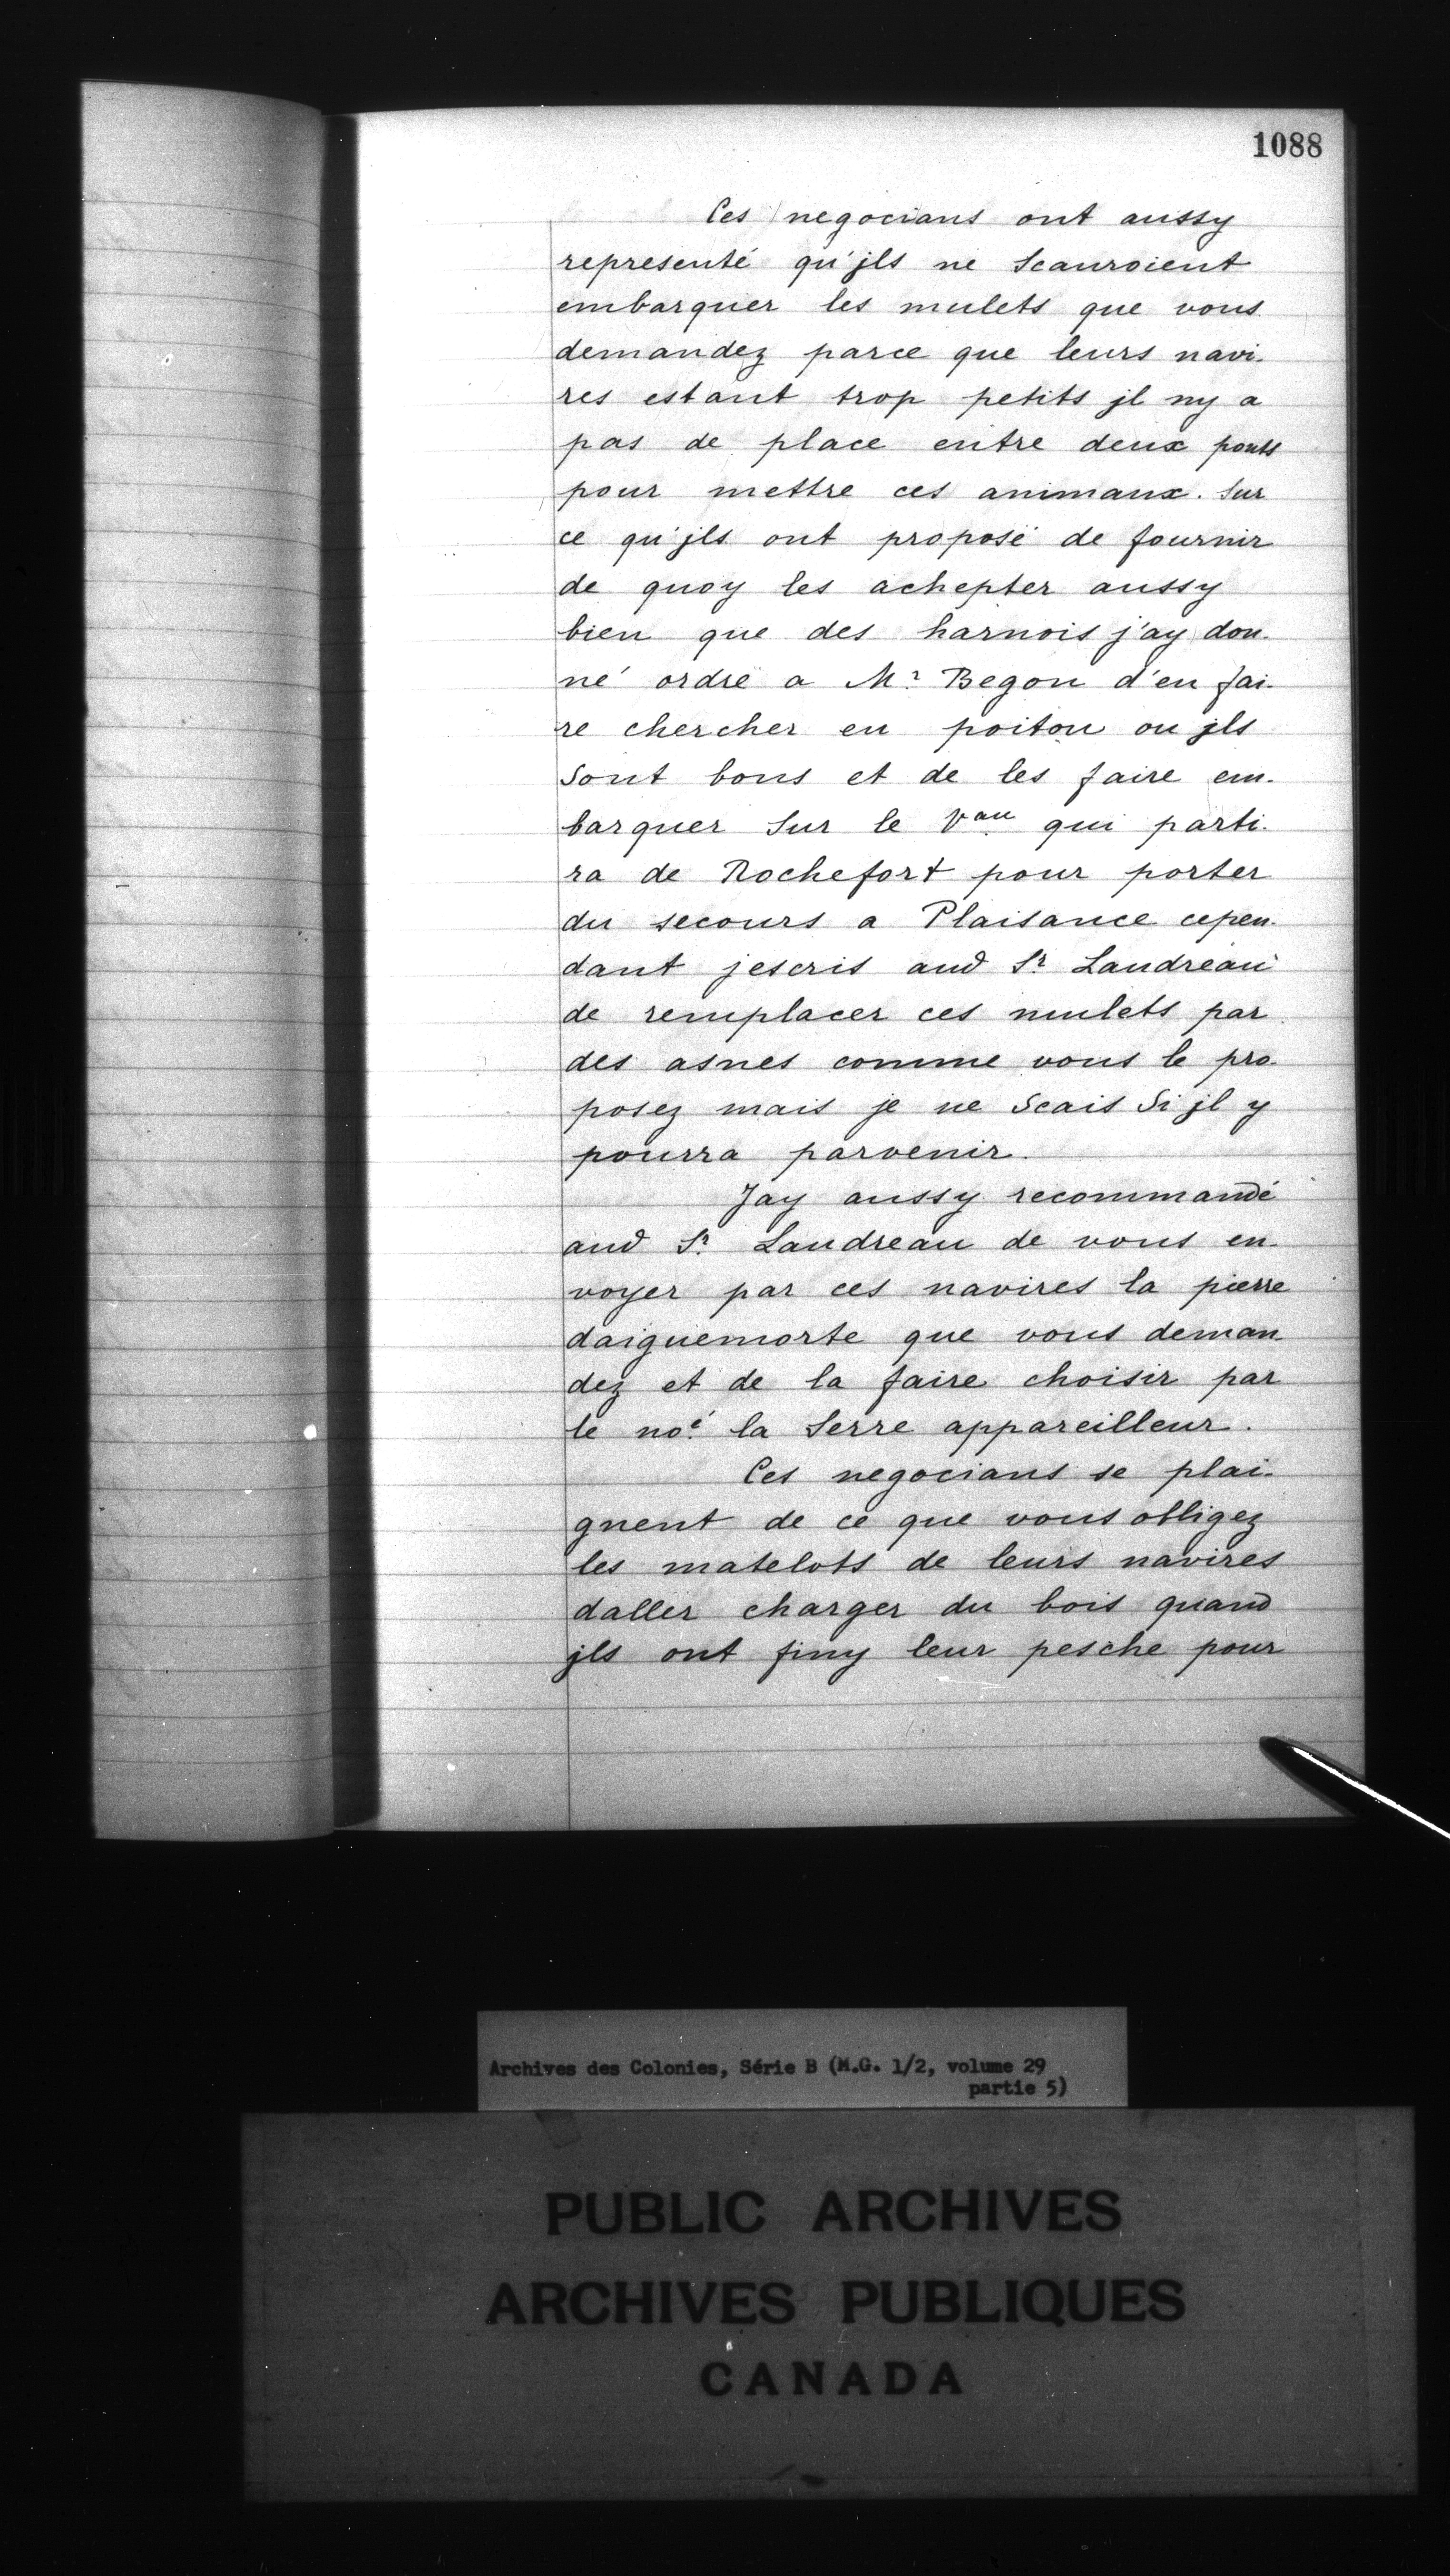 1088
Ces negocians ont aussy
representé qu'jls ne Scauroient
embarquer les mulets que vous
demandez parce que leurs navi-
res estant trop petits jl ny a
pas de place entre deux ponts
pour mettre ces animaux. Sur
ce qu'jls ont proposé de fournir
de quoy les achepter aussy
bien que des harnois j'ay don-
né ordre a Mr Begon d'en fai-
re chercher en poitou ou jls
Sont bons et de les faire em-
barquer Sur le Vau qui parti-
ra de Rochefort pour porter
du secours a Plaisance cepen-
dant jescris aud Sr Landreau
de remplacer ces mulets par
des asnes comme vous le pro-
posez mais je ne Scais Si jl y
pourra parvenir.
Jay aussy recommandé
aud Sr Landreau de vous en-
voyer par ces navires la pierre
daiguemorte que vous deman-
dez et de la faire choisir par
le noé la Serre appareilleur.
Ces negocians se plai-
gnent de ce que vous obligez
les matelots de leurs navires
daller charger du bois quand
jls ont finy leur pesche pour
Archives des Colonies, Série B (M.G. 1/2, volume 29
partie 5)
PUBLIC ARCHIVES
ARCHIVES PUBLIQUES
CANADA